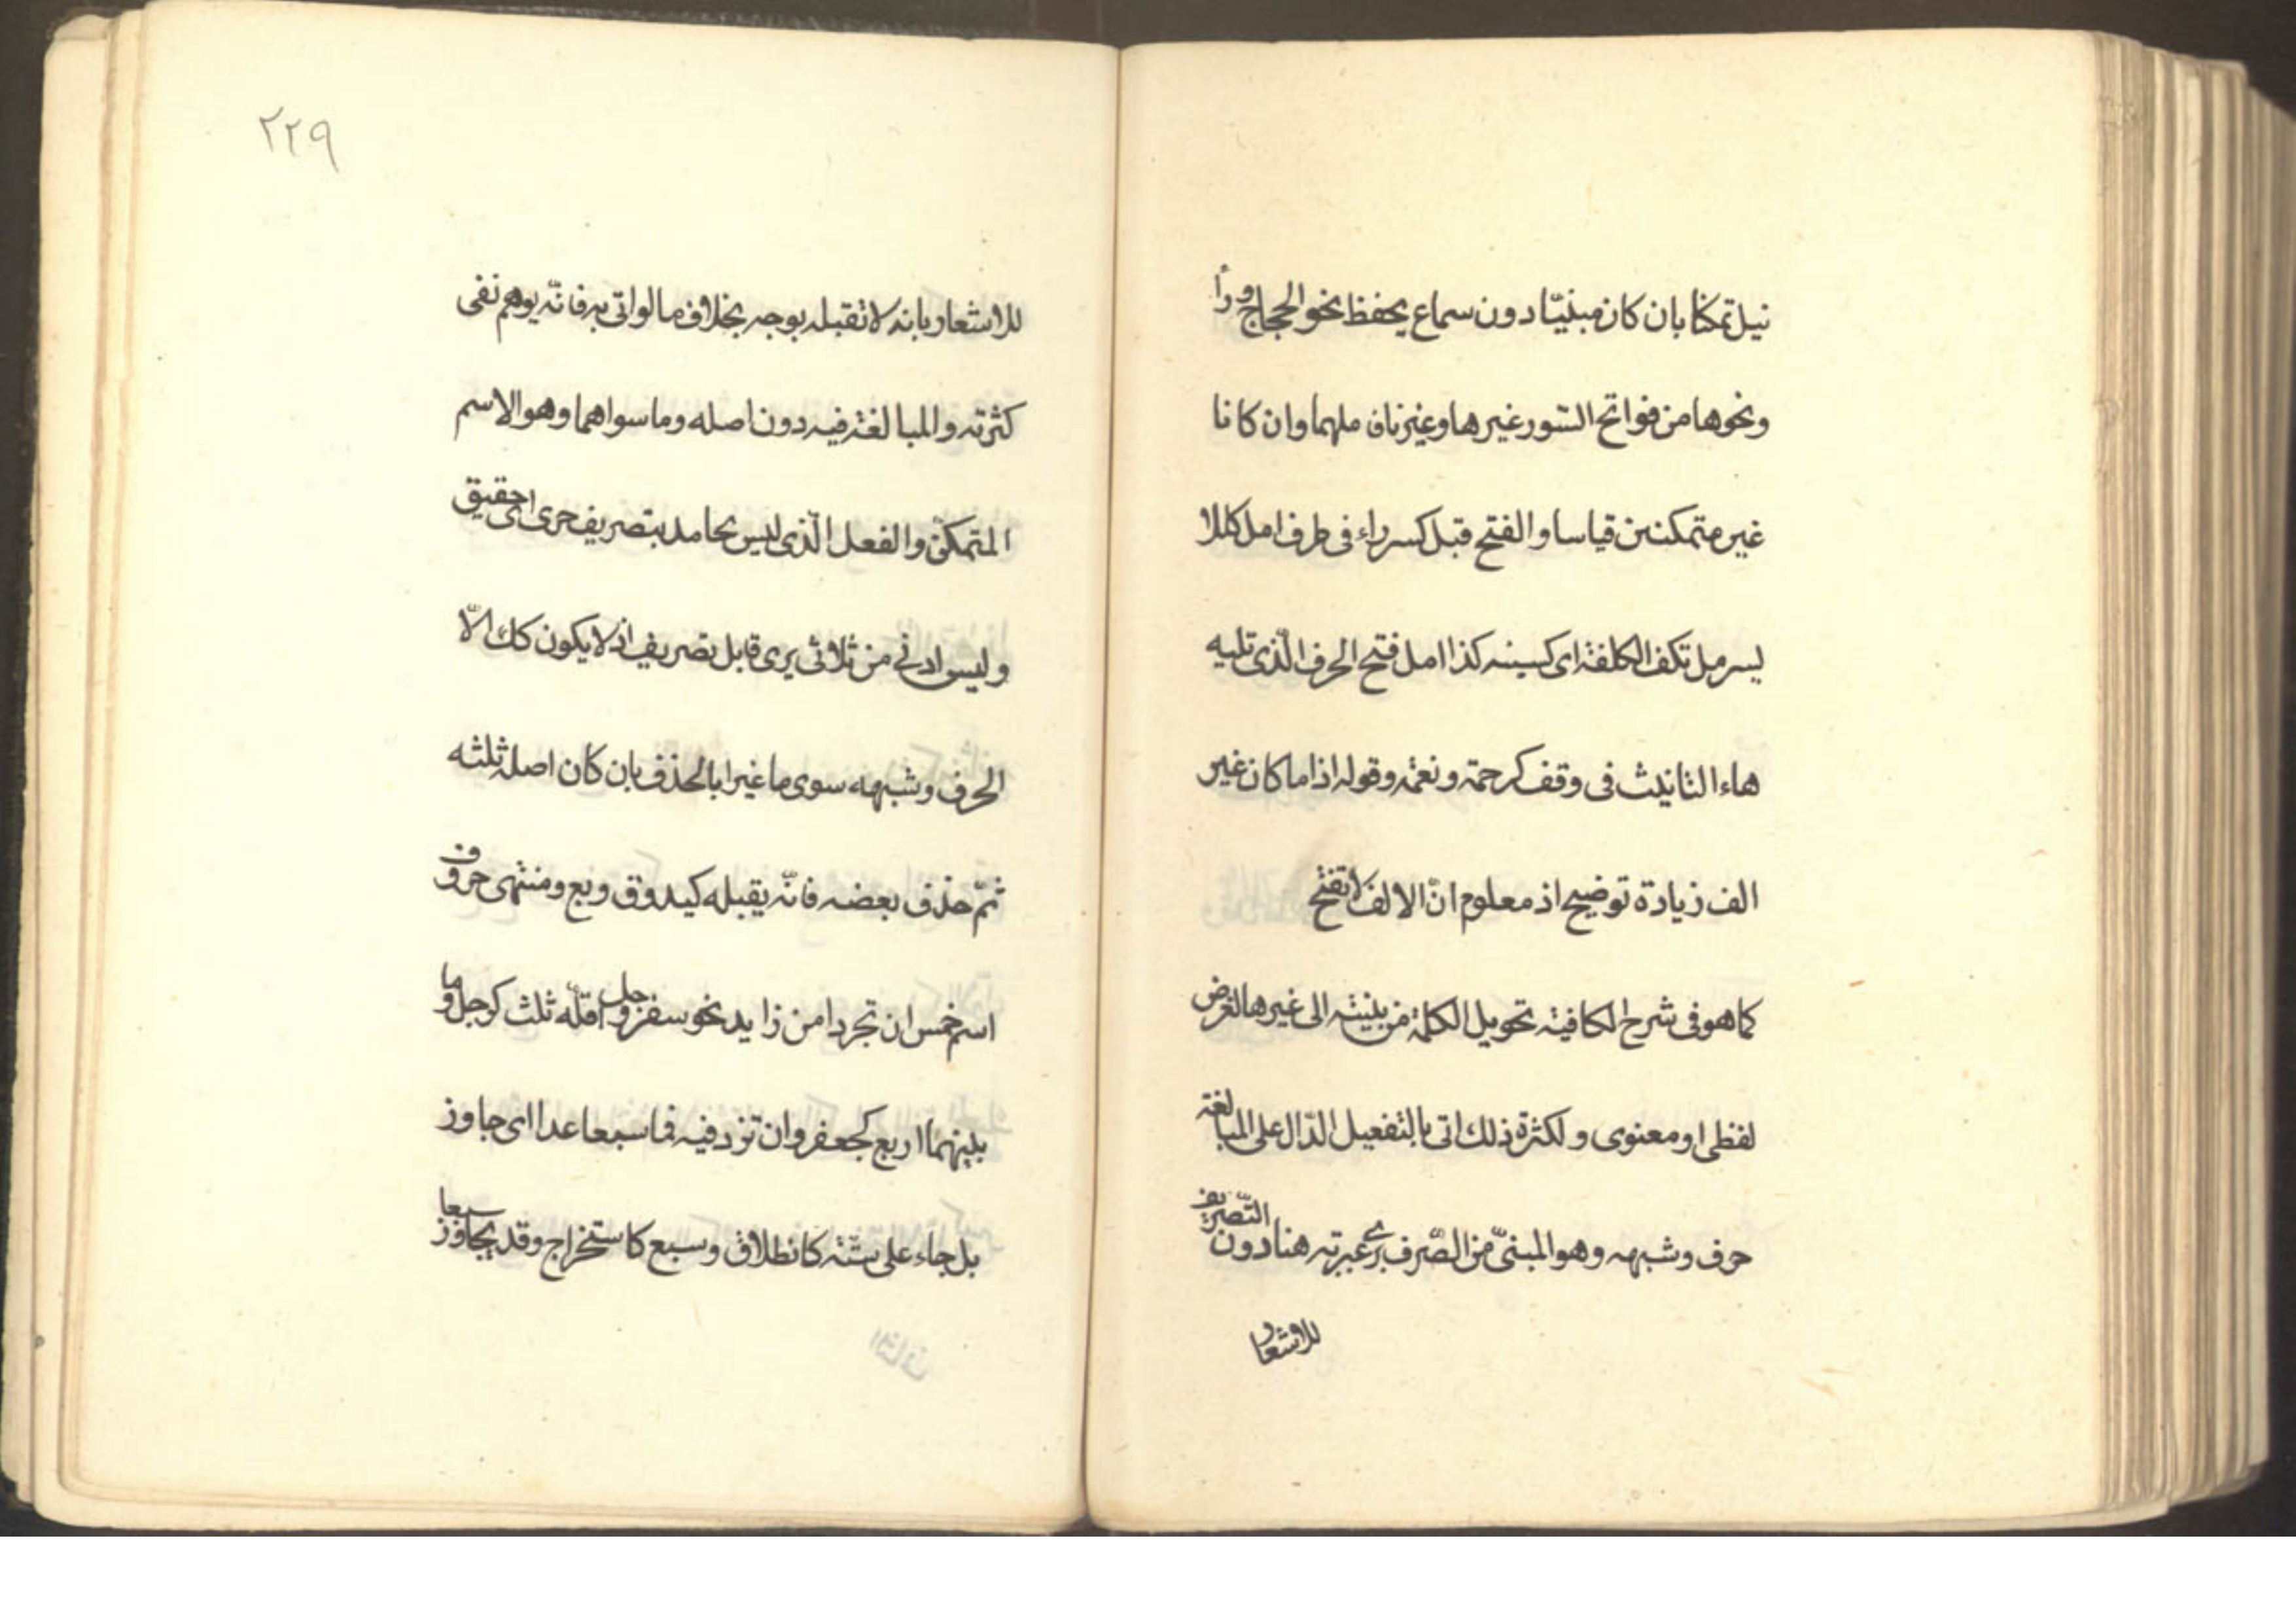 نيل تمكنا بان كان مبنيّا دون سماع يحفظ نحو الحجاج وراً
ونحوها من فواتح السّور غير ها وغير نا ملهما وان كانا
غير متمكنين قياسا والفتح قبل كسر راء فى طرف امل كللا
يسر مل تكف الكلفة اى كسينه كذا امل فتح الحرف الّذى تليه
هاء التانيث فى وقف كرحمة ونعمة وقوله اذا ما كان غير
الف زيادة توضيح اذ معلوم انّ الالف لا تفتح
كما هو فى شرح الكافية تحويل الكلمة من بنيته الى غيرها لغرض
لفظى او معنوى ولكثرة ذلك اتى بالتفعيل الدّال على المبالغة
حرف وشبهه وهو المبنىّ من الصّرف برى عبر به هنا دون التّصريف
للاشعار
٢٢٩
للاشعار بانه لا تقبله بوجه بخلاف ما لو اتى به فانّه يوهم نفى
كثرته والمبالغة فيه دون اصله وما سواهما وهو الاسم
المتمكنّ والفعل الّذى ليس بجامد بتصريف حرى اى حقيق
وليس ادنى من ثلاثى يرى قابل تصريف اذ لا يكون كك الّا
الحرف وشبهه سوى ما غيرا بالحذف بان كان اصله ثلثه
ثمّ حذف بعضه فانّه يقبله كيد وق وبع ومنتهى حروف
اسم خمس ان تجردا من زايد نحو سفرجل واقلّه ثلث كرجل وما
بينهما اربع كجعفر وان تزد فيه فما سبعا عدا اى جاوز
بل جاء على ستّة كانطلاق وسبع كاستخراج وقد يجاوز سبعا